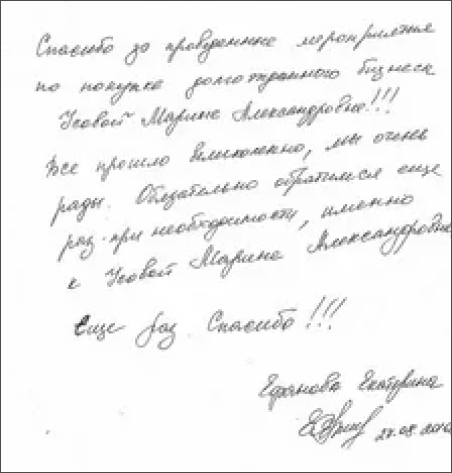 Спасибо за проведенные мероприятия
по покупке долгожданного бизнеса
Усовой Марине Александровне!!!
Все прошло великолепно, мы очень
рады. Обязательно обратимся еще
раз при необходимости, именно
к Усовой Марине Александровне
Еще раз Спасибо!!!
Екатерина